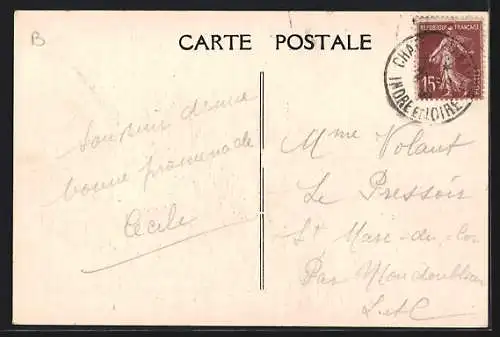 B
CARTE POSTALE
REPUBLIQUE FRANÇAISE
15c
CHA
INDRE ET LOIRE
Souvenir d'une
bonne promenade
Cécile
Mme Volant
Le Pressoir
St Marc-du-Cor
Par Mondoubleau
L-et-C